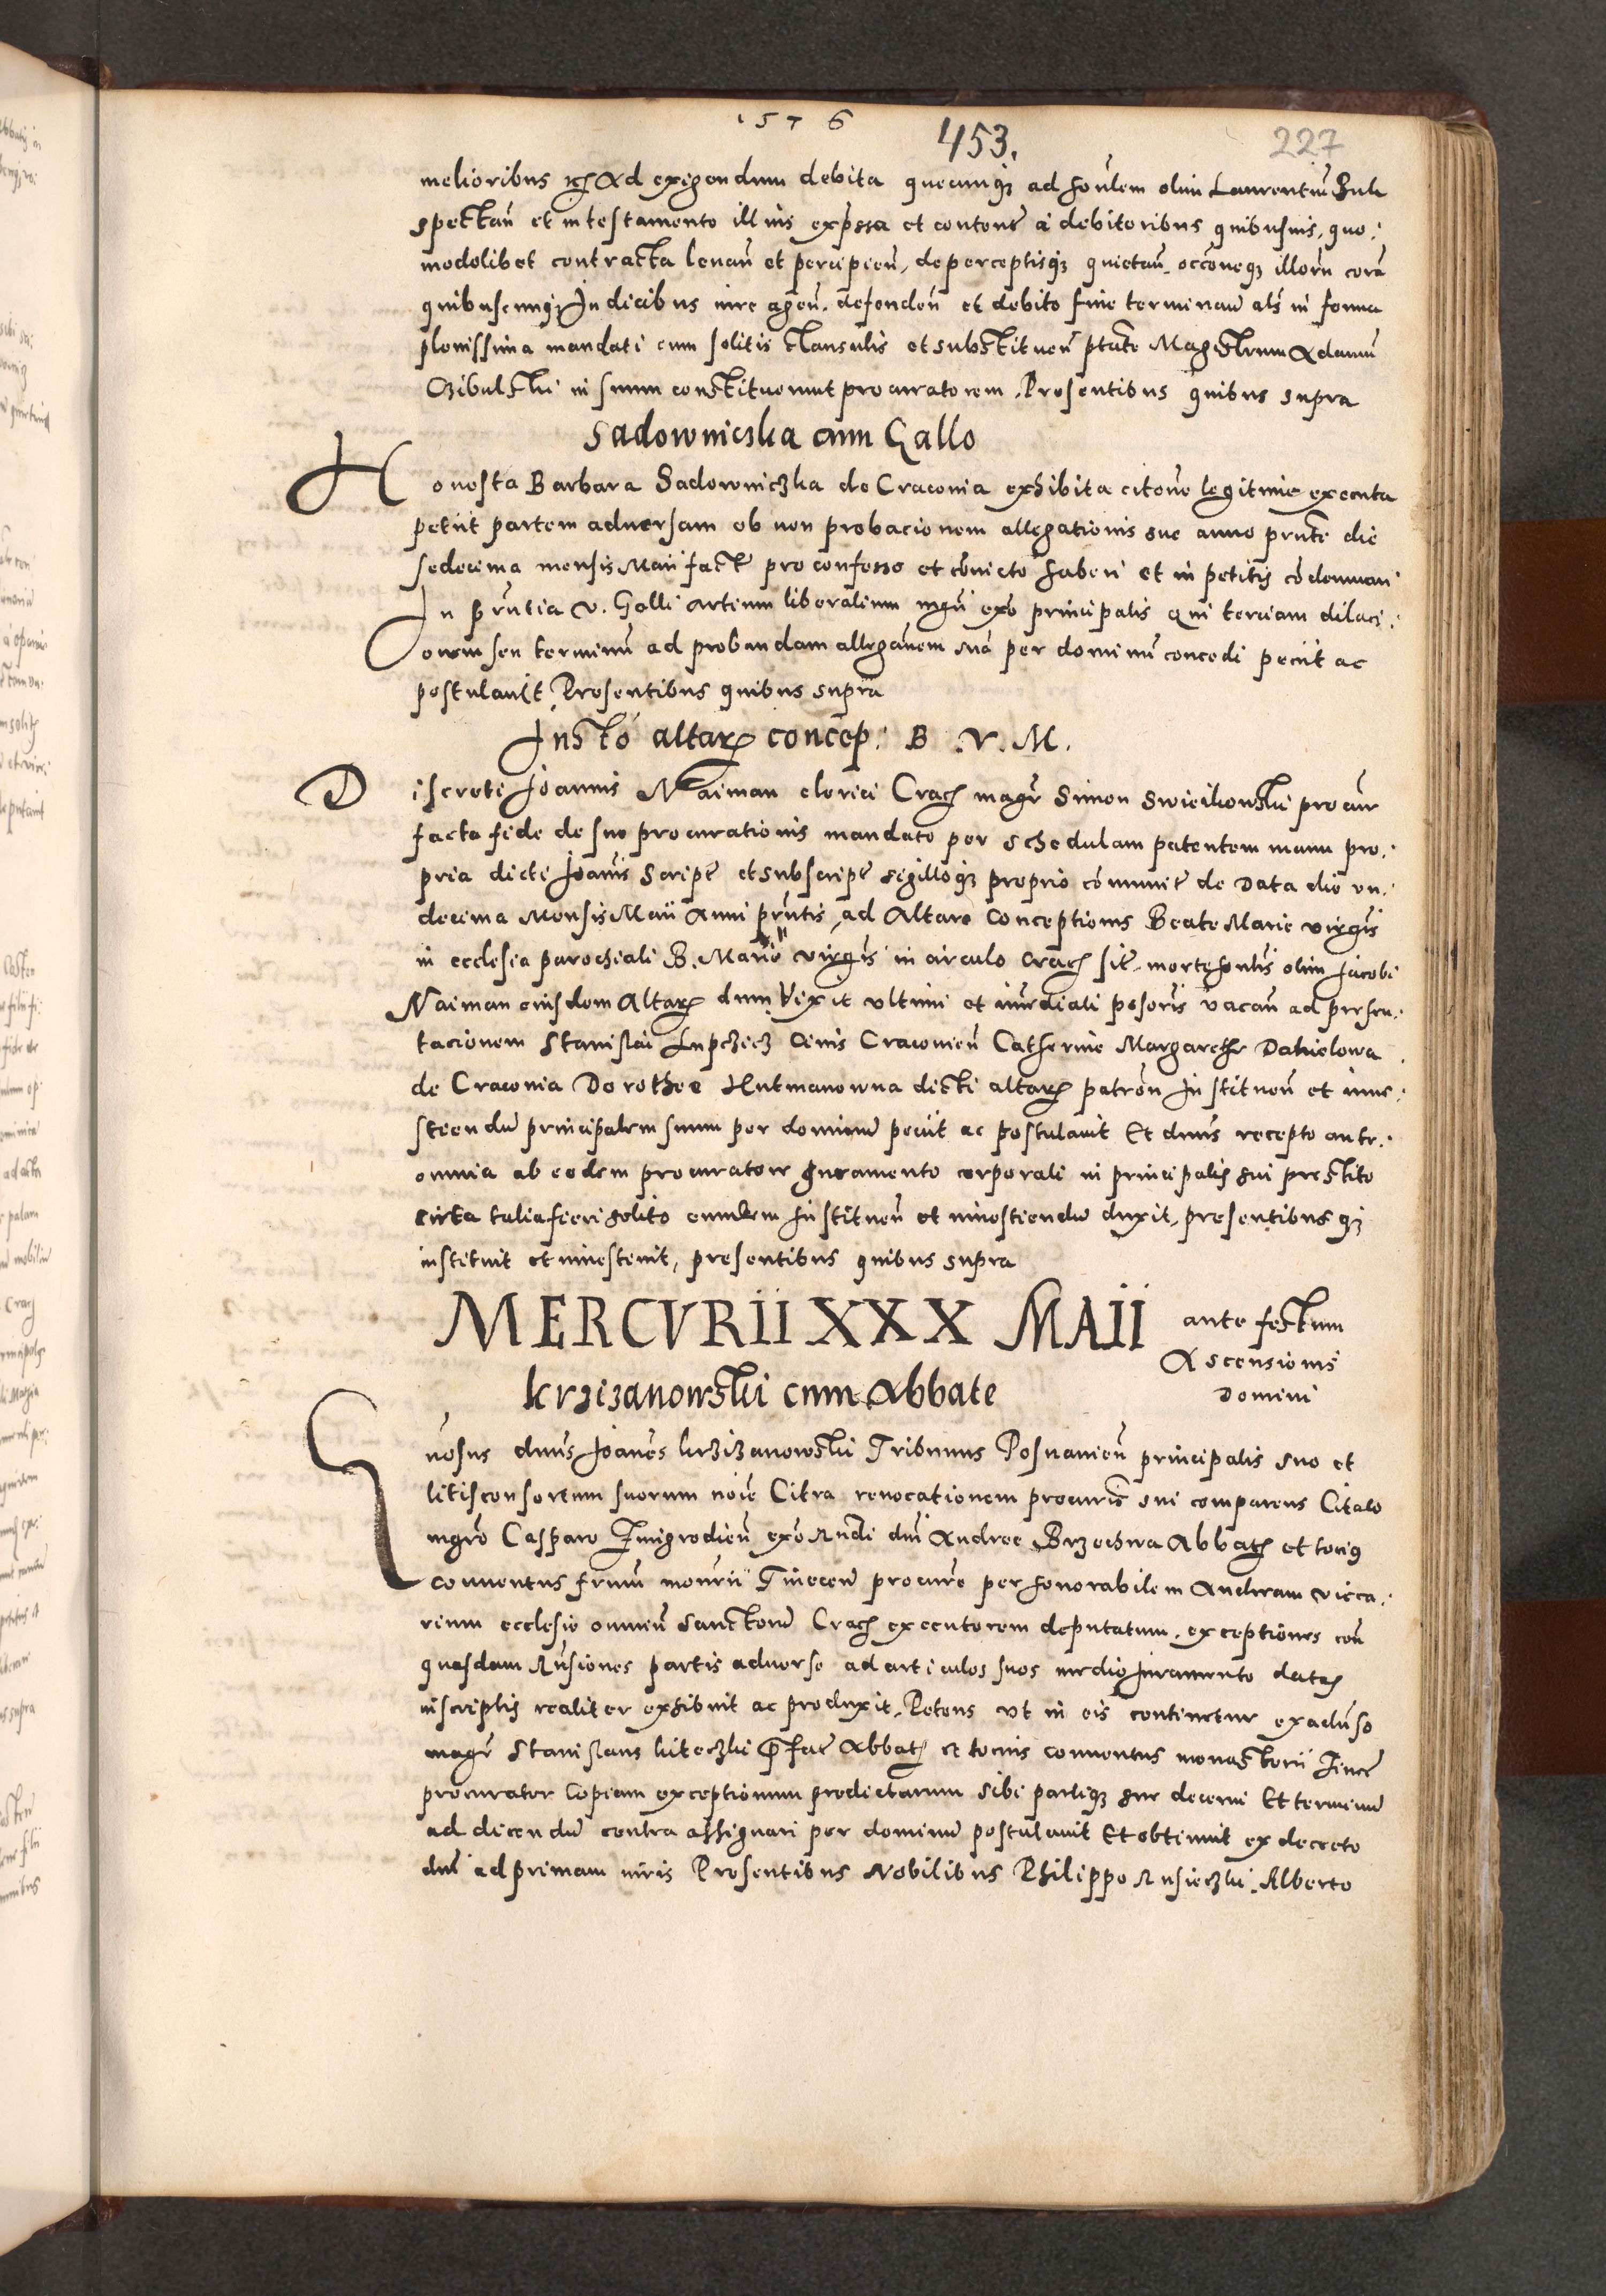 1576
453.
227
melioribus etc Ad exigendum debita quecunqz ad honlem olim Laurentiũ Zuk
spectañ et in testamento illius expssa et content̃ a debitoribus quibusuis, quo:
modolibet contracta leuañ et percipieñ, de perceptisqz quietañ, occoneqz illorũ corã
quibuscunqz Iudicibus iure ageñ, defendeñ et debito fine terminañ als in forma
plenissima mandati cum solitis clausulis et substitueñ ptate Magistrum Adamũ
Czibulski in suum constituerunt procuratorem. Presentibus quibus supra
Sadowniczka cum Gallo
Honesta Barbara Sadowniczka de Cracouia exhibita citone legitime executa
petiit partem aduersam ob non probacionem allegationis sue anno prnte die
sedecima mensis Maii fact̃ pro confesso et conuicto haberi et in petitis cõdemnari
In pñtia v. Galli artium liberalium mgri exo principalis qui terciam dilaci:
onem seu terminũ ad probandam allegãnem suã per dominũ concedi petiit ac
postulauit, Presentibus quibus supra
Insto altaris concep: B. V. M.
Discreti Joannis Naiman clerici Crac magr Simon Swicikowski procur
facta fide de suo procurationis mandato per schedulam patentem manu pro:
pria dicti Joannis script̃ et subscript̃ sigilloqz proprio cõmunit̃ de Data die vn:
decima Mensis Maii Anni prntis, ad Altare Conceptionis Beate Marie virgis
in ecclesia parochiali B. Marie virgis in circulo Crac sit̃ mortẽ honlis olim Jacobi
Naiman eiusdem Altaris dum vixit vltimi et imediati possoris vacañ ad presen:
tacionem Stanislai Lupczicz Ciuis Cracouieñ Catherine Margarethe Danielowa
de Cracouia Dorothee Hutmanowna dicti altaris patroñ Institueñ et inue:
stiendũ principalem suum per dominũ peciit ac postulauit Et dnus recepto ante:
omnia ab eodem procuratore Juramento corporali in principalis sui prestito
circa talia fieri solito eundem Institueñ et inuestiendũ duxit, presentibus qz
instituit et inuestiuit, presentibus quibus supra
MERCVRII XXX MAII ante festum
Ascensionis
Domini
Krzizanowski cum Abbate
Gnosus dnus Joanes Krzizanowski Tribunus Posnanieñ principalis suo et
litis consortum suorum noie Citra reuocationem procuris sui comparens Citato
mgro Casparo Zmigrodieñ exo Rndi dni Andree Brzechwa Abbatis et totius
conuentus frum monrii Tinecen procure per honorabilem Andream vicca:
rium ecclesie omniũ Sanctorũ Crac executorem deputatum, exceptiones con
quasdam Rnsiones partis aduerse ad articulos suos medio Juramento datas
in scriptis realiter exhibuit ac produxit, Petens vt in eis continetur ex aduso
magr Stanislaus Kiteczki pfat̃ Abbatis et totius conuentus monasterii Tinec
procurator Copiam exceptionum predictarum sibi partiqz sue decerni Et terminũ
ad dicendũ contra assignari per dominũ postulauit Et obtinuit ex decreto
dni ad primam iuris Presentibus Nobilibus Philippo Rusieczki, Alberto